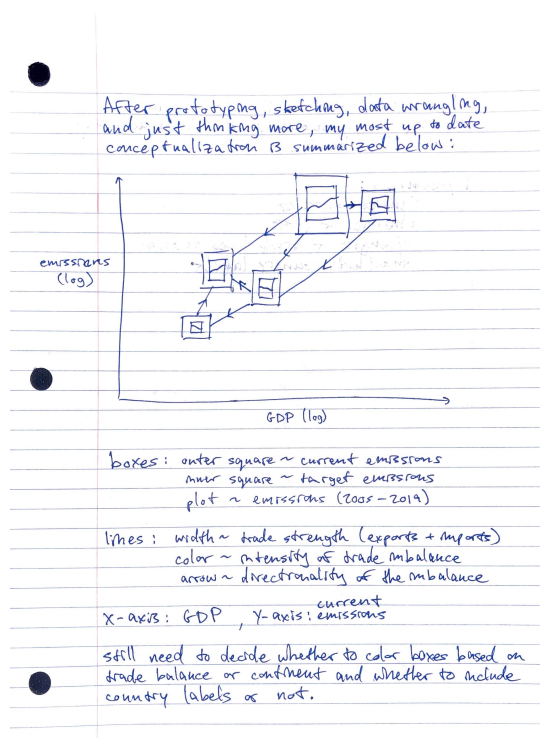 After prototyping, sketching, data wrangling,
and just thinking more, my most up to date
conceptualization is summarized below:
emissions
(log)
GDP (log)
boxes: outer square ~ current emissions
inner square ~ target emissions
plot ~ emissions (2005-2019)
lines: width ~ trade strength (exports + imports)
color ~ intensity of trade imbalance
arrow ~ directionality of the imbalance
x-axis: GDP, Y-axis: current emissions
still need to decide whether to color boxes based on
trade balance or continent and whether to include
country labels or not.